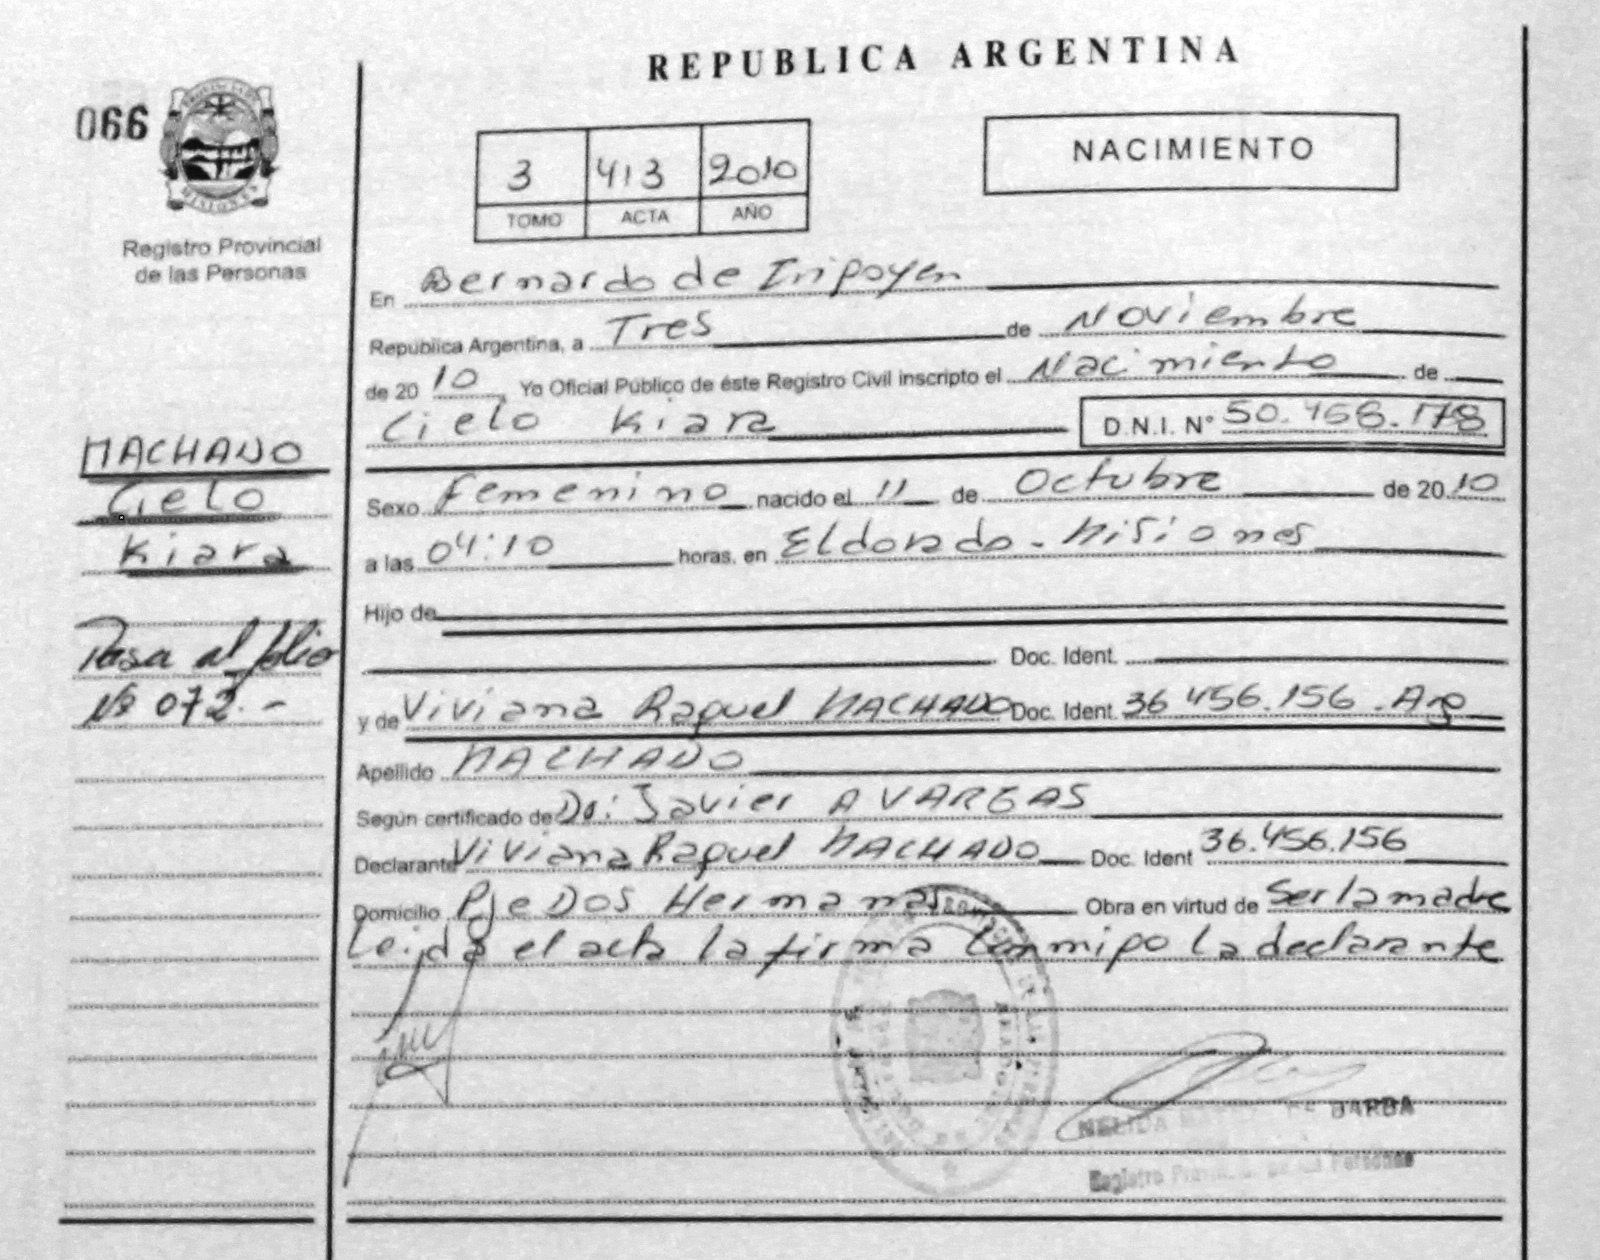 REPUBLICA ARGENTINA
066
NACIMIENTO
3 413 2010
TOMO ACTA AÑO
MISIONES
Registro Provincial
de las Personas
En Bernardo de Iripoyen
Republica Argentina, a Tres de Noviembre
de 2010, Yo Oficial Público de éste Registro Civil inscripto el Nacimiento de
Cielo Kiara D.N.I. N° 50.468.178
MACHADO
Cielo
Kiara
Sexo Femenino nacido el 11 de Octubre de 2010
a las 04:10 horas, en Eldorado - Misiones
Hijo de
Pasa al folio
Nº 072.-
Doc. Ident.
y de Viviana Raquel MACHADO Doc. Ident. 36 456.156 . Arg
Apellido MACHADO
Según certificado de Dr: Javier A VARGAS
Declarante Viviana Raquel MACHADO Doc. Ident 36.456.156
Domicilio Pje Dos Hermanas Obra en virtud de Ser la madre
Leida el acta la firma Conmipo la declarante
NELIDA DE BARBA
Registro Provincial de las Personas